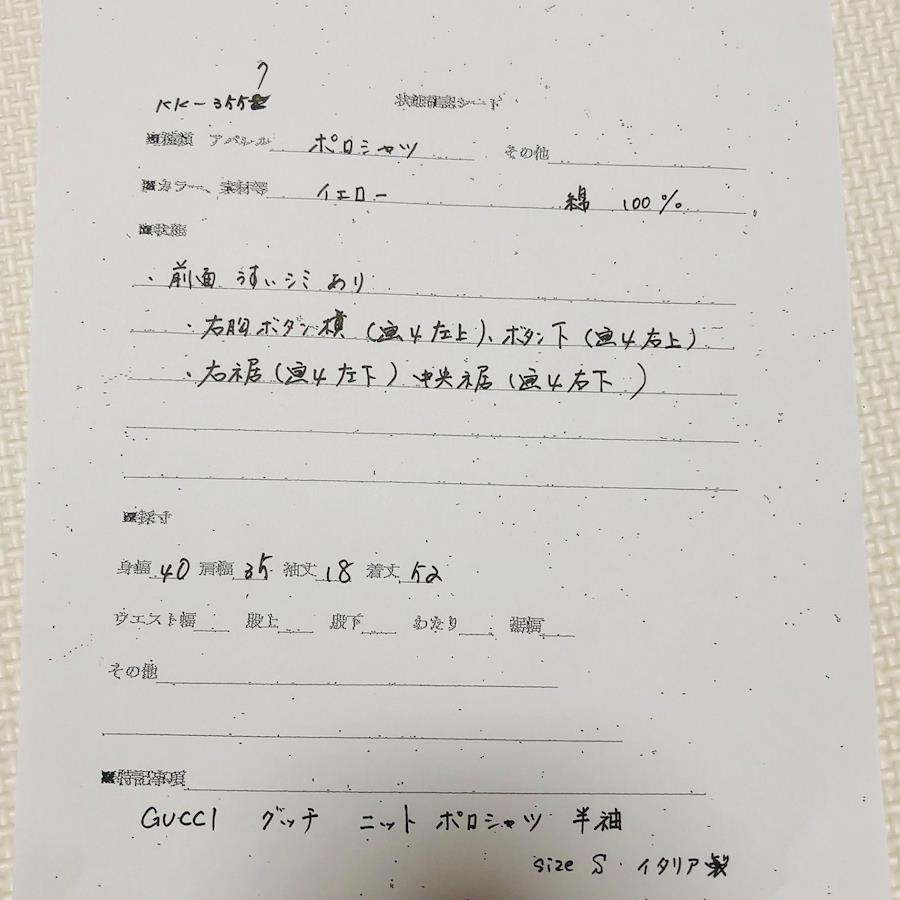 7
KK-355
状態確認シート
■種類 アパレル ポロシャツ その他
■カラー、素材等 イエロー 綿 100%
■状態
・前面 うすいシミ あり
・右胸ボタン横 (画4左上)、ボタン下 (画4右上)
・右裾 (画4左下) 中央裾 (画4右下)
■採寸
身幅 40 肩幅 35 袖丈 18 着丈 52
ウエスト幅 股上 股下 わたり 裾幅
その他
■特記事項
GUCCI グッチ ニット ポロシャツ 半袖
size S・イタリア製